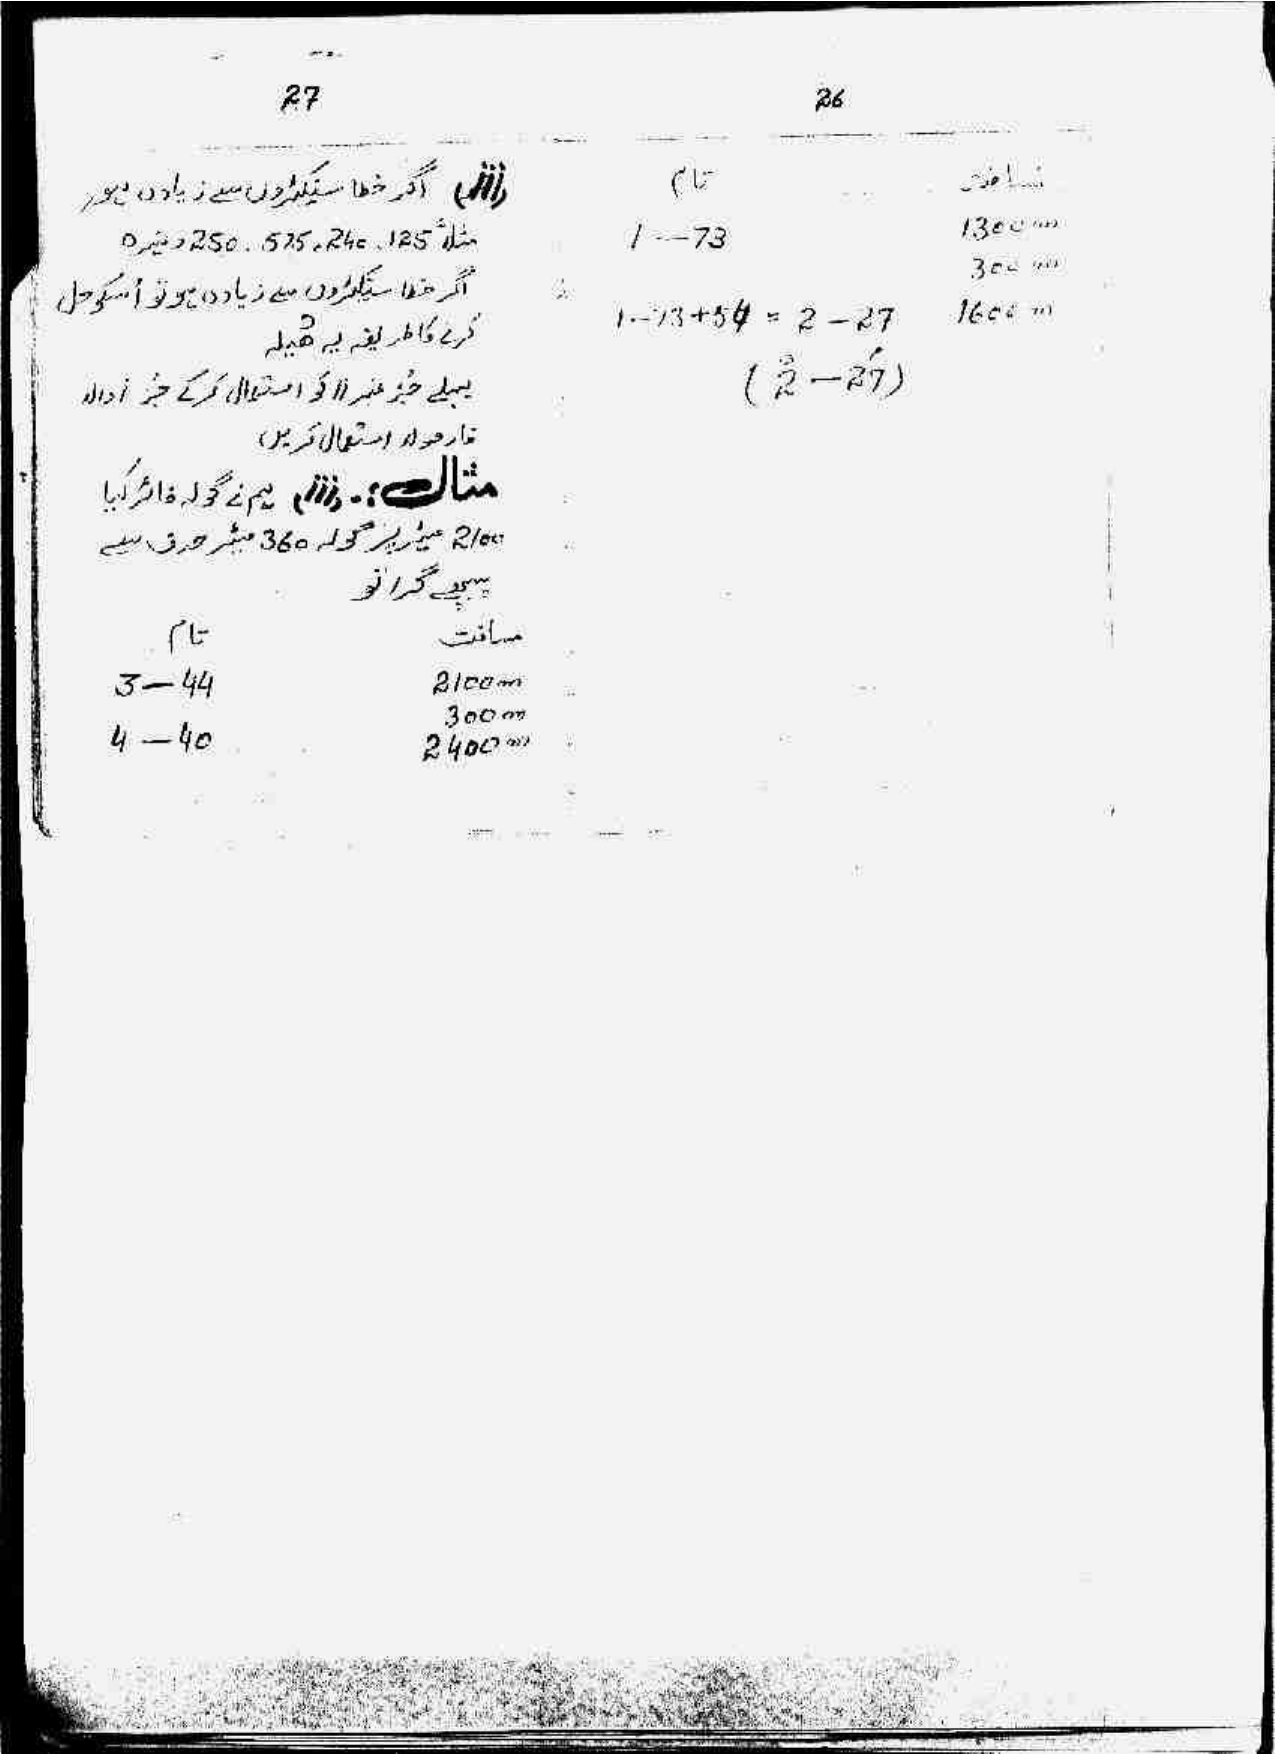 26
مسافت تام
1300m 1-73
300m
1600m 1-73+54 = 2-27
(2-27)
27
اگر خطا سینکڑوں سے زیادہ ہو
مثلاً 125، 240، 575، 250 وغیرہ
اگر خطا سینکڑوں سے زیادہ ہو تو اُسکو حل
کرنے کا طریقہ یہ ھیکہ
پہلے جُز نمبر کو استعمال کرکے جُز والا
فارمولا استعمال کریں
مثال:۔ ہم نے گولہ فائر کیا
2100 میٹر پر گولہ 360 میٹر ہدف سے
پیچھے گرا تو
مسافت تام
2100m 3-44
300m
2400m 4-40